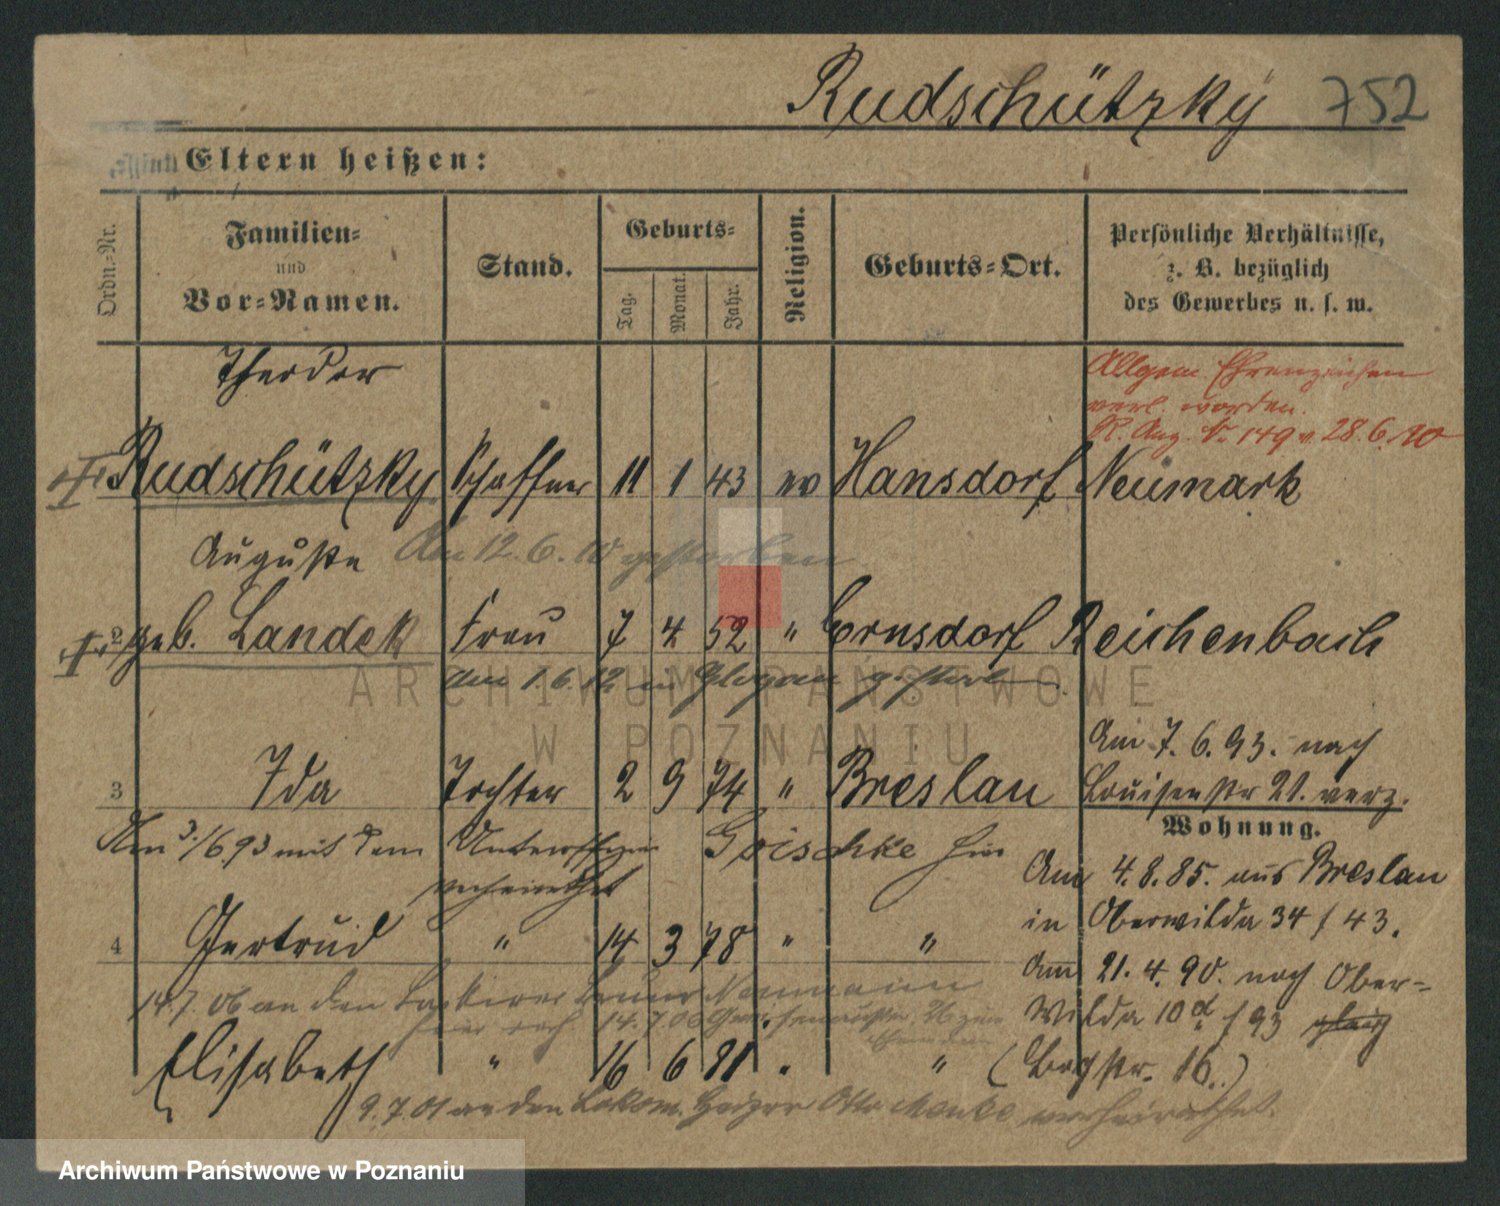 Rudschützky 752
Eltern heißen:
Ordn.-Nr.
Familien-
und
Vor-Namen.
Stand.
Geburts-
Tag.
Monat.
Jahr.
Religion.
Geburts-Ort.
Persönliche Verhältnisse,
z. B. bezüglich
des Gewerbes u. s. w.
Theodor
Allgem Ehrenzeichen
verl. worden.
R. Anz. N. 149 v. 28.6.10
Rudschützky Schaffner 11 1 43 ev Hansdorf Neumark
Auguste Am 12.6.10 gestorben
2 geb. Landek Frau 7 4 52 " Ernsdorf Reichenbach
Am 1.6.12 in Glogau gestorb
Am 7.6.93. nach
3 Ida Tochter 2 9 74 " Breslau Louisenstr 21. verz.
Wohnung.
Am 3./6 93 mit dem Unteroffizier Goischke hier
verheirathet
Am 4.8.85. aus Breslau
in Oberwilda 34 / 43.
4 Gertrud " 14 3 78 " "
Am 21.4.90. nach Ober-
Wilda 10 d / 93
14.7.06 an den Lackierer Bruno Neumann
hier 14.7.06
Elisabeth " 16 6 81 " " (Bachstr. 16.)
9.7.01 an den Lokom. Heizer Otto Menke verheirathet.
ARCHIWUM PAŃSTWOWE
W POZNANIU
Archiwum Państwowe w Poznaniu